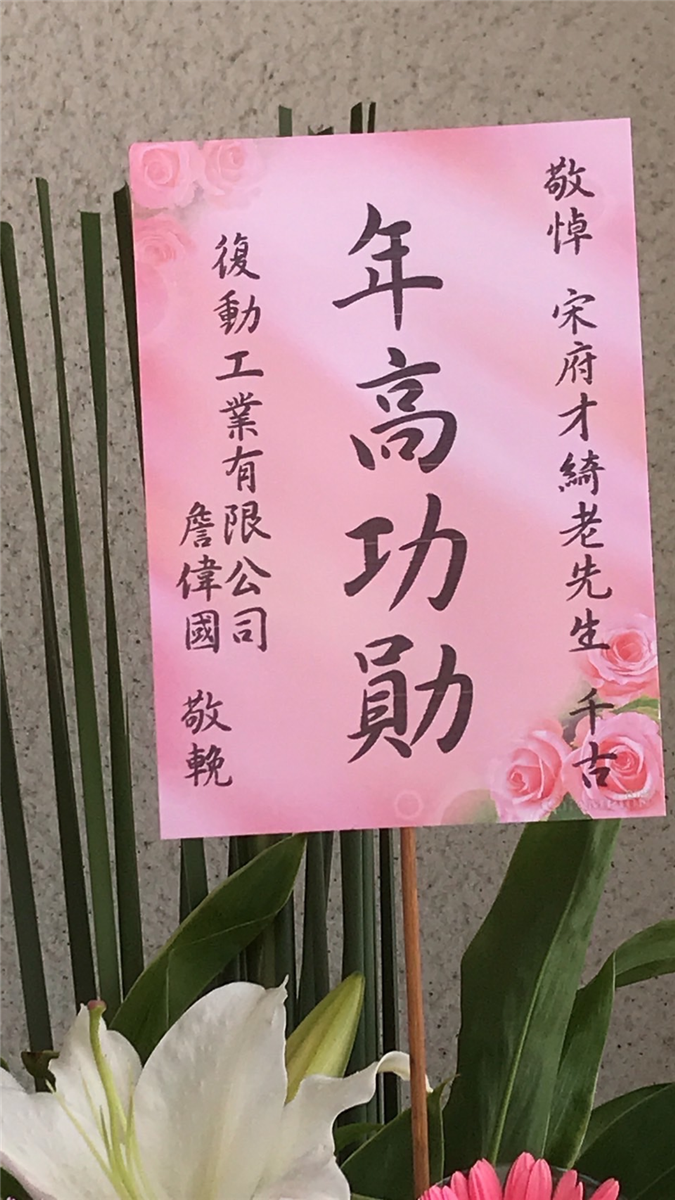 敬悼 宋府才綺老先生 千古
年高功勛
復動工業有限公司
詹偉國 敬輓